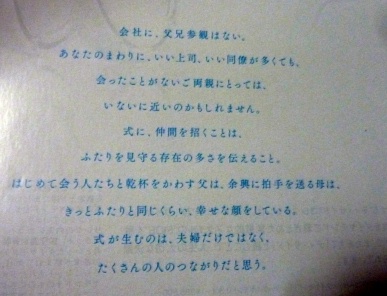 会社に、父兄参観はない。
あなたのまわりに、いい上司、いい同僚が多くても、
会ったことがないご両親にとっては、
いないに近いのかもしれません。
式に、仲間を招くことは、
ふたりを見守る存在の多さを伝えること。
はじめて会う人たちと乾杯をかわす父は、余興に拍手を送る母は、
きっとふたりと同じぐらい、幸せな顔をしている。
式が生むのは、夫婦だけではなく、
たくさんの人のつながりだと思う。